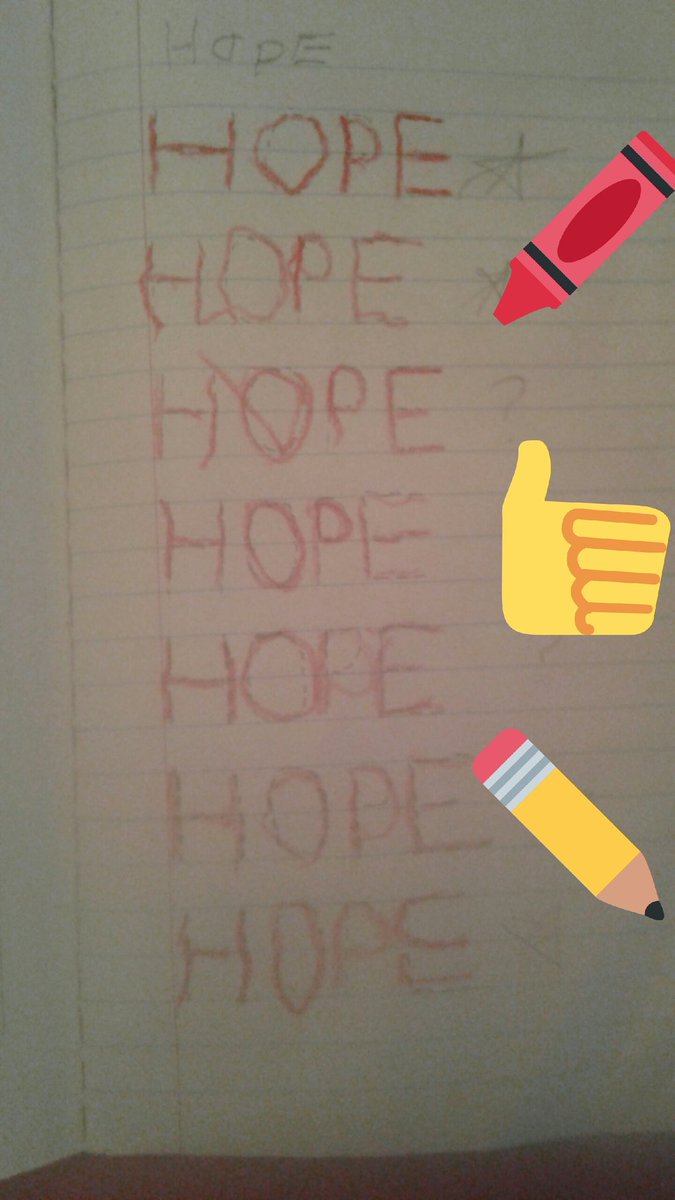 HOPE
HOPE
HOPE
HOPE
HOPE
HOPE
HOPE
HOPE